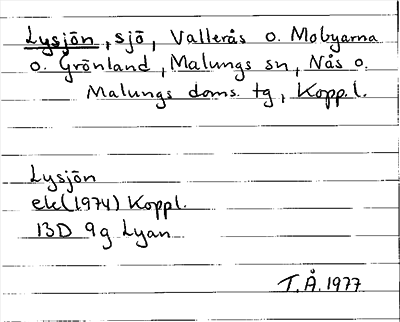 Lysjön, sjö, Vallerås o. Mobyarna
o. Grönland, Malungs sn, Nås o.
Malungs doms. tg, Kopp.l.
Lysjön
ek(1974) Koppl.
13D 9g Lyan
T.Å.1977